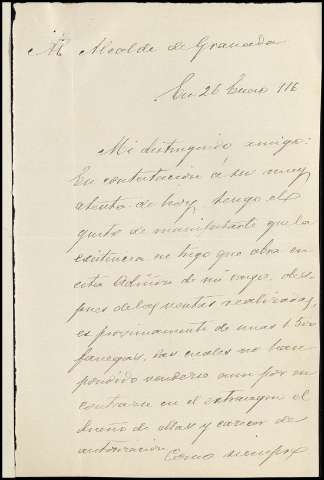 Alcalde de Granada
En 26 Enero 916
Mi distinguido amigo:
En contestación á su muy
atenta de hoy, tengo el
gusto de manifestarle que la
existencia de trigo que obra en
esta Admón de mi cargo, des-
pues de las ventas realizadas,
es proximamente de unas
fanegas, las cuales no han
podido venderse aun por en-
contrarse en el extrangero el
dueño de ellas y carecer de
autorización. Como siempre